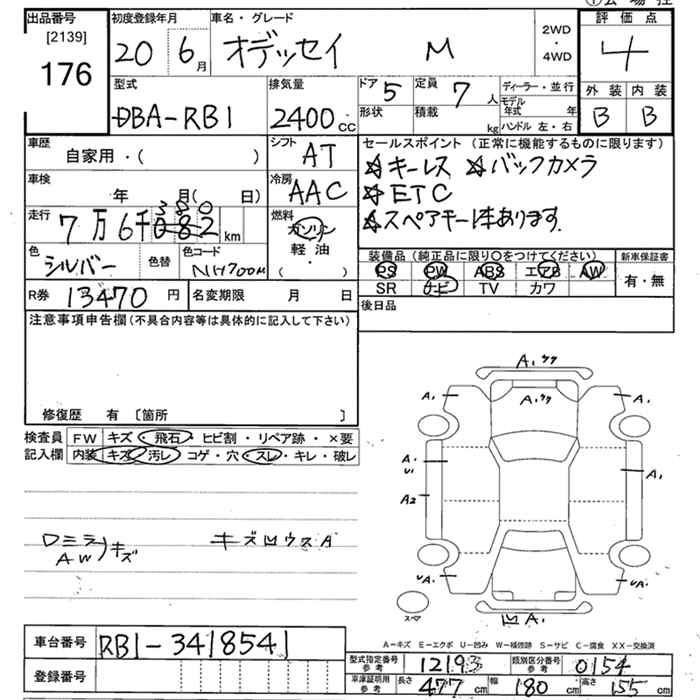 出品番号 初度登録年月 車名・グレード 評価点
[2139] 176
20 6月 オデッセイ M 2WD・4WD 4
型式 排気量 ドア 定員 ディーラー・並行 外装 内装
DBA-RB1 2400cc 5 7人 モデル年式 年 B B
形状 積載 kg ハンドル 左・右
車歴 シフト セールスポイント (正常に機能するものに限ります)
自家用・( ) AT ☆キーレス ☆バックカメラ
車検 冷房 ☆ETC
年 月( 日) AAC ☆スペアキー1本あります.
走行 燃料
7万6千082km 380 ガソリン 軽油・( )
色 色替 色コード 装備品(純正品に限り○をつけてください) 新車保証書
シルバー NH700M PS PW ABS エアB AW 有・無
SR ナビ TV カワ
R券 13470円 名変期限 月 日 後日品
注意事項申告欄(不具合内容等は具体的に記入して下さい)
修復歴 有 〔箇所 〕
検査員 FW キズ・飛石・ヒビ割・リペア跡・×要
記入欄 内装 キズ・汚レ・コゲ・穴・スレ・キレ・破レ
A.
A.
A.
A.
A
A1
A2
ロミラー キズ凹ウスA
AW キズ
UA.
UA.
スペア
凹A.
A-キズ E-エクボ U-凹み W-補修跡 S-サビ C-腐食 XX-交換済
車台番号 RB1-3418541
型式指定番号 参考 12193 類別区分番号 参考 0154
登録番号 車庫証明用 参考 長さ 477cm 幅 180cm 高さ 155cm